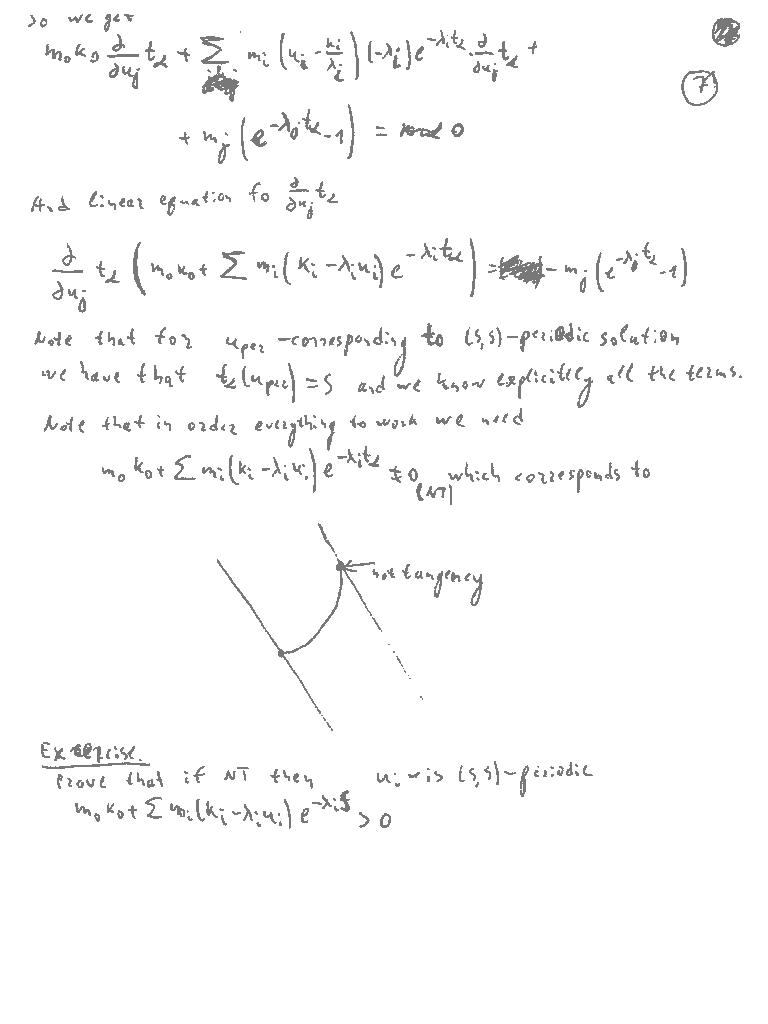 So we get
m₀k₀ ∂/∂u_j t_α + Σ_i m_i (u_i - k_i/λ_i) (-λ_i) e^{-λ_i t_α} · ∂/∂u_j t_α +
7
+ m_j (e^{-λ_j t_α} - 1) = 0
And linear equation fo ∂/∂u_j t_α
∂/∂u_j t_α (m₀k₀ + Σ m_i (k_i - λ_i u_i) e^{-λ_i t_α}) = - m_j (e^{-λ_j t_α} - 1)
Note that for u_per - corresponding to (s,s)-periodic solution
we have that t_α(u_per) = s and we know explicitely all the terms.
Note that in order everything to work we need
m₀k₀ + Σ m_i (k_i - λ_i u_i) e^{-λ_i t_α} ≠ 0 (NT) which corresponds to
not tangency
Exercise.
Prove that if NT then u_i - is (s,s)-periodic
m₀k₀ + Σ m_i (k_i - λ_i u_i) e^{-λ_i s} > 0